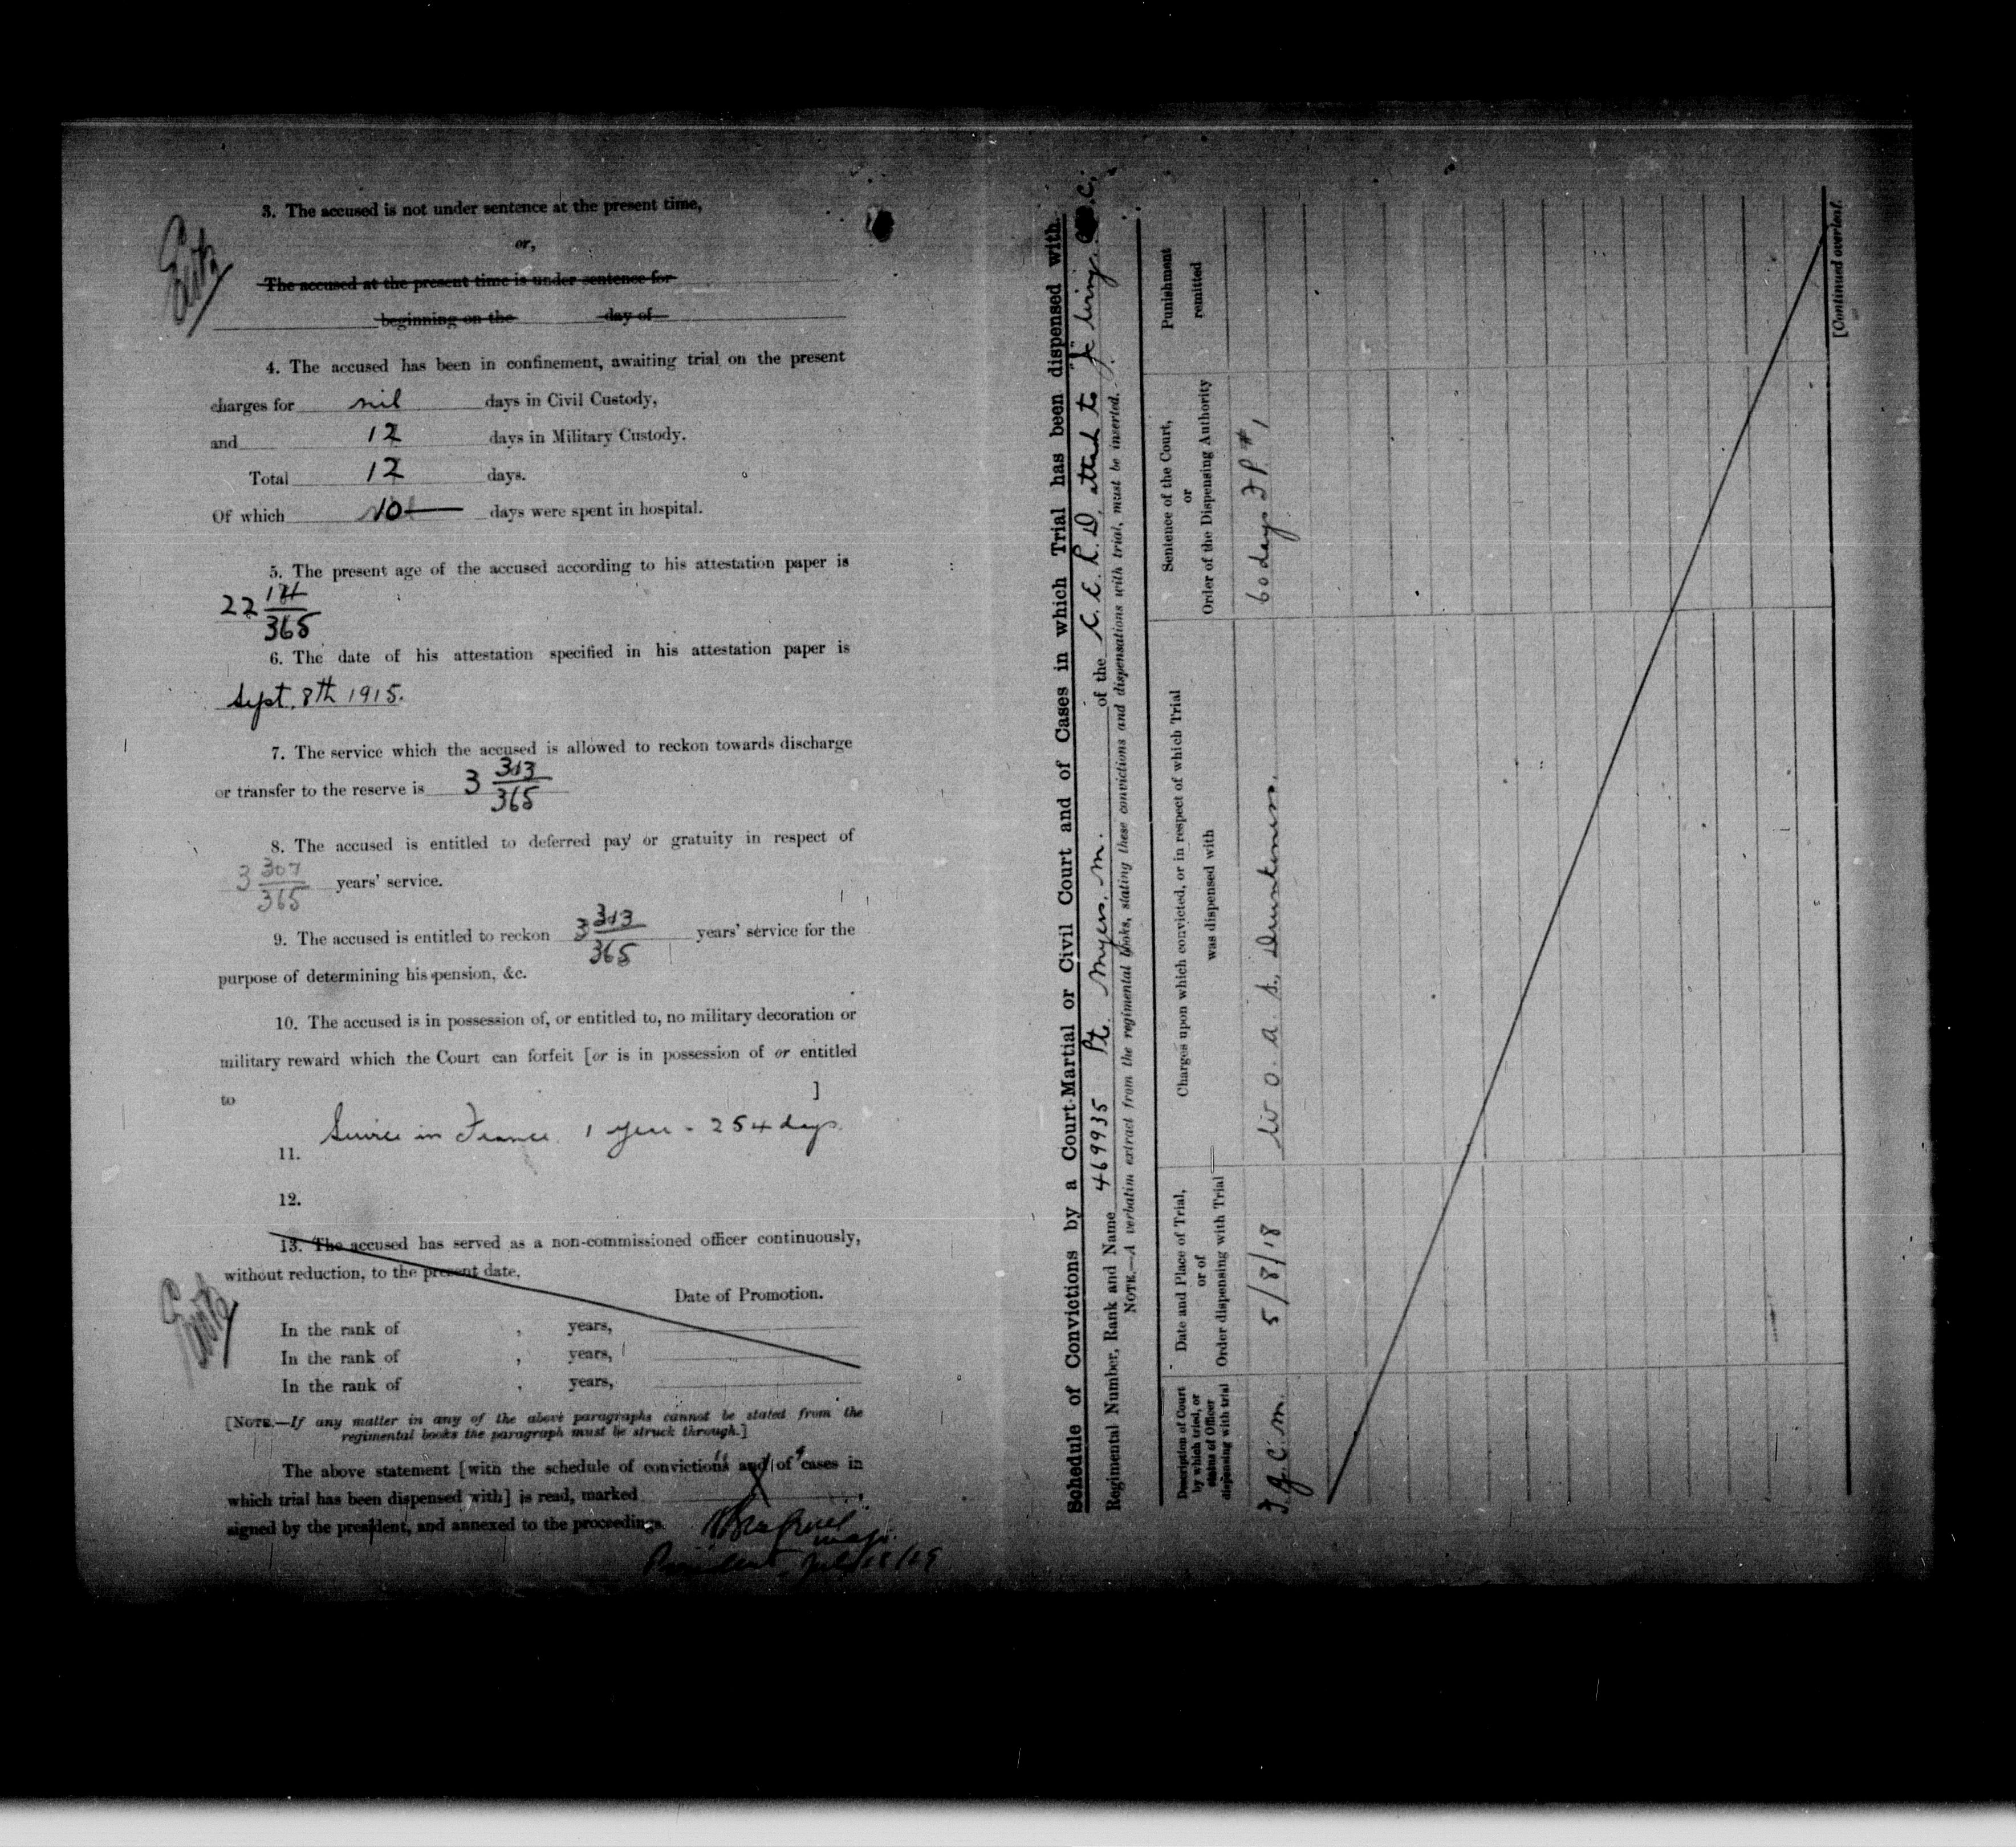 3. The accused is not under sentence at the present time,
or,
The accused at the present time is under sentence for
beginning on the day of
4. The accused has been in confinement, awaiting trial on the present
charges for nil days in Civil Custody,
and 12 days in Military Custody.
Total 12 days.
Of which days were spent in hospital.
5. The present age of the accused according to his attestation paper is
22 /365
6. The date of his attestation specified in his attestation paper is
Sept. 8th 1915.
7. The service which the accused is allowed to reckon towards discharge
or transfer to the reserve is 3 313/365
8. The accused is entitled to deferred pay or gratuity in respect of
3 307/365 years' service.
9. The accused is entitled to reckon 3 313/365 years' service for the
purpose of determining his pension, &c.
10. The accused is in possession of, or entitled to, no military decoration or
military reward which the Court can forfeit [or is in possession of or entitled
to ]
11. Service in France 1 year - 254 days.
12.
13. The accused has served as a non-commissioned officer continuously,
without reduction, to the present date.
Date of Promotion.
In the rank of , years,
In the rank of , years,
In the rank of , years,
[NOTE.—If any matter in any of the above paragraphs cannot be stated from the
regimental books the paragraph must be struck through.]
The above statement [with the schedule of convictions and of cases in
which trial has been dispensed with] is read, marked ,
signed by the president, and annexed to the proceedings.
Maj.
President.
Schedule of Convictions by a Court-Martial or Civil Court and of Cases in which Trial has been dispensed with.
Regimental Number, Rank and Name 469935 Pt. Myers, M. of the C.C.R.D. attach to
NOTE.—A verbatim extract from the regimental books, stating these convictions and dispensations with trial, must be inserted.
Description of Court
by which tried, or
status of Officer
dispensing with trial
Date and Place of Trial,
or of
Order dispensing with Trial
Charges upon which convicted, or in respect of which Trial
was dispensed with
Sentence of the Court,
or
Order of the Dispensing Authority
Punishment
remitted
F.G.C.M. 5/8/18 W.O.A.S. Drunkenness. 60 days F.P. #1
[Continued overleaf.